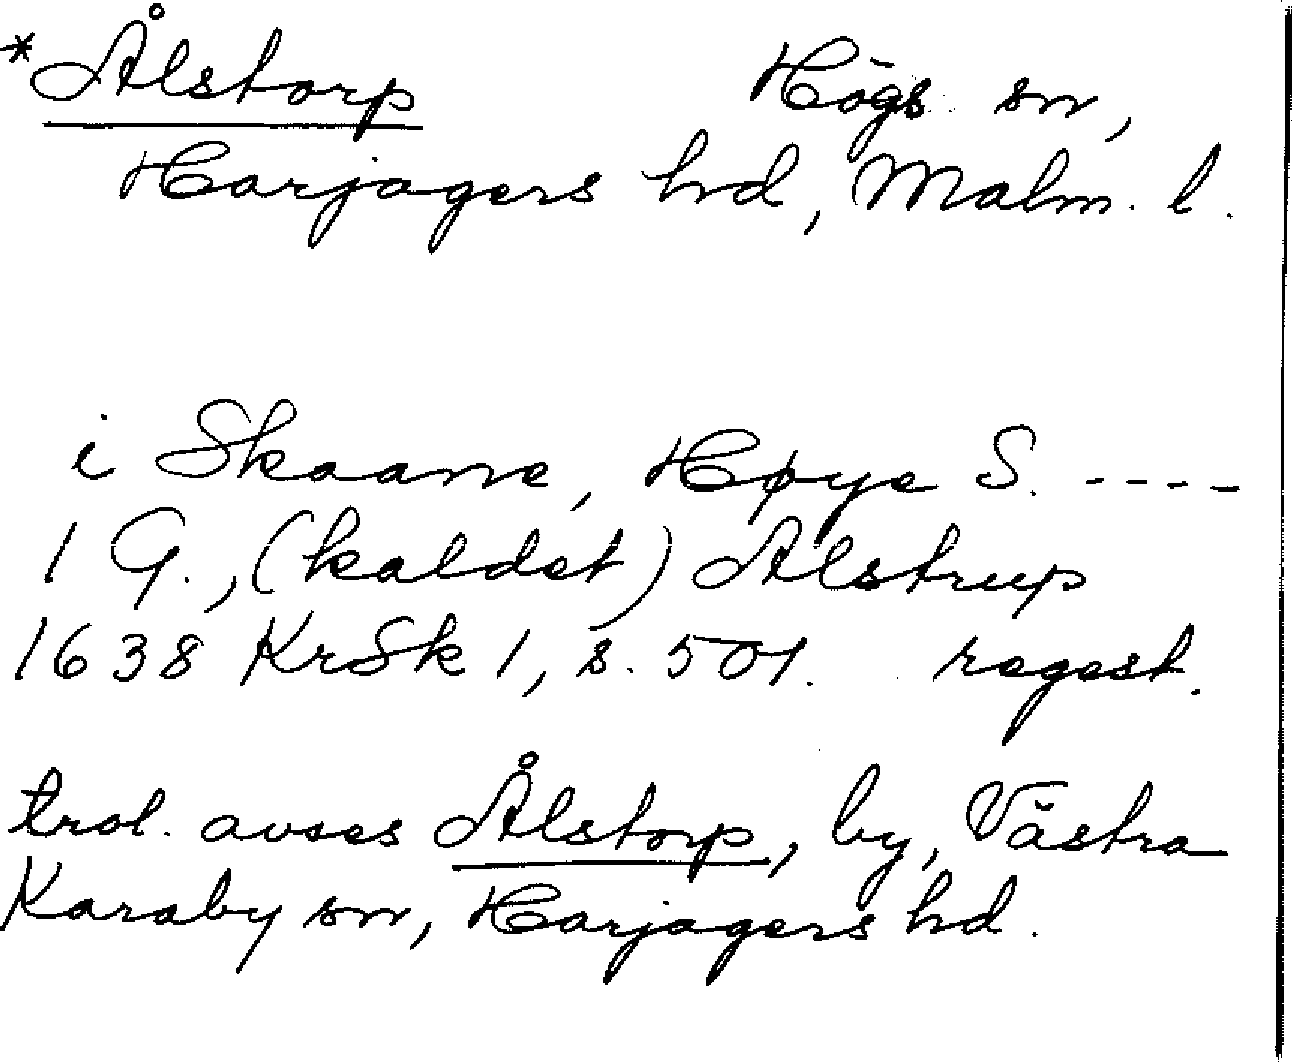 *Ålstorp Högs sn,
Harjagers hd, Malm. l.
i Skaane, Høye S. ----
1 G., (kaldet) Alstrup
1638 KrSk 1, s. 501. regest.
trol. avses Ålstorp, by, Västra
Karaby sn, Harjagers hd.